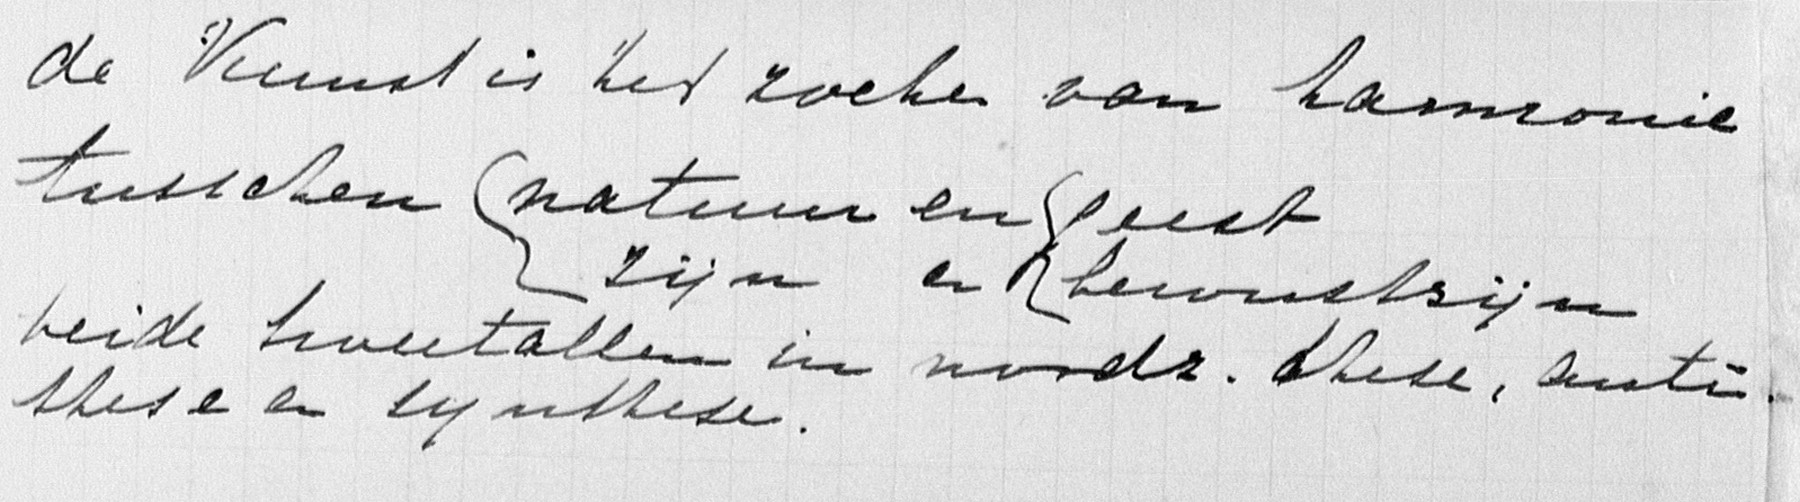 de Kunst is het zoeken van harmonie
tusschen { natuur en { geest
zijn en { bewustzijn
beide tweetallen in noodz. these, anti-
these en synthese.